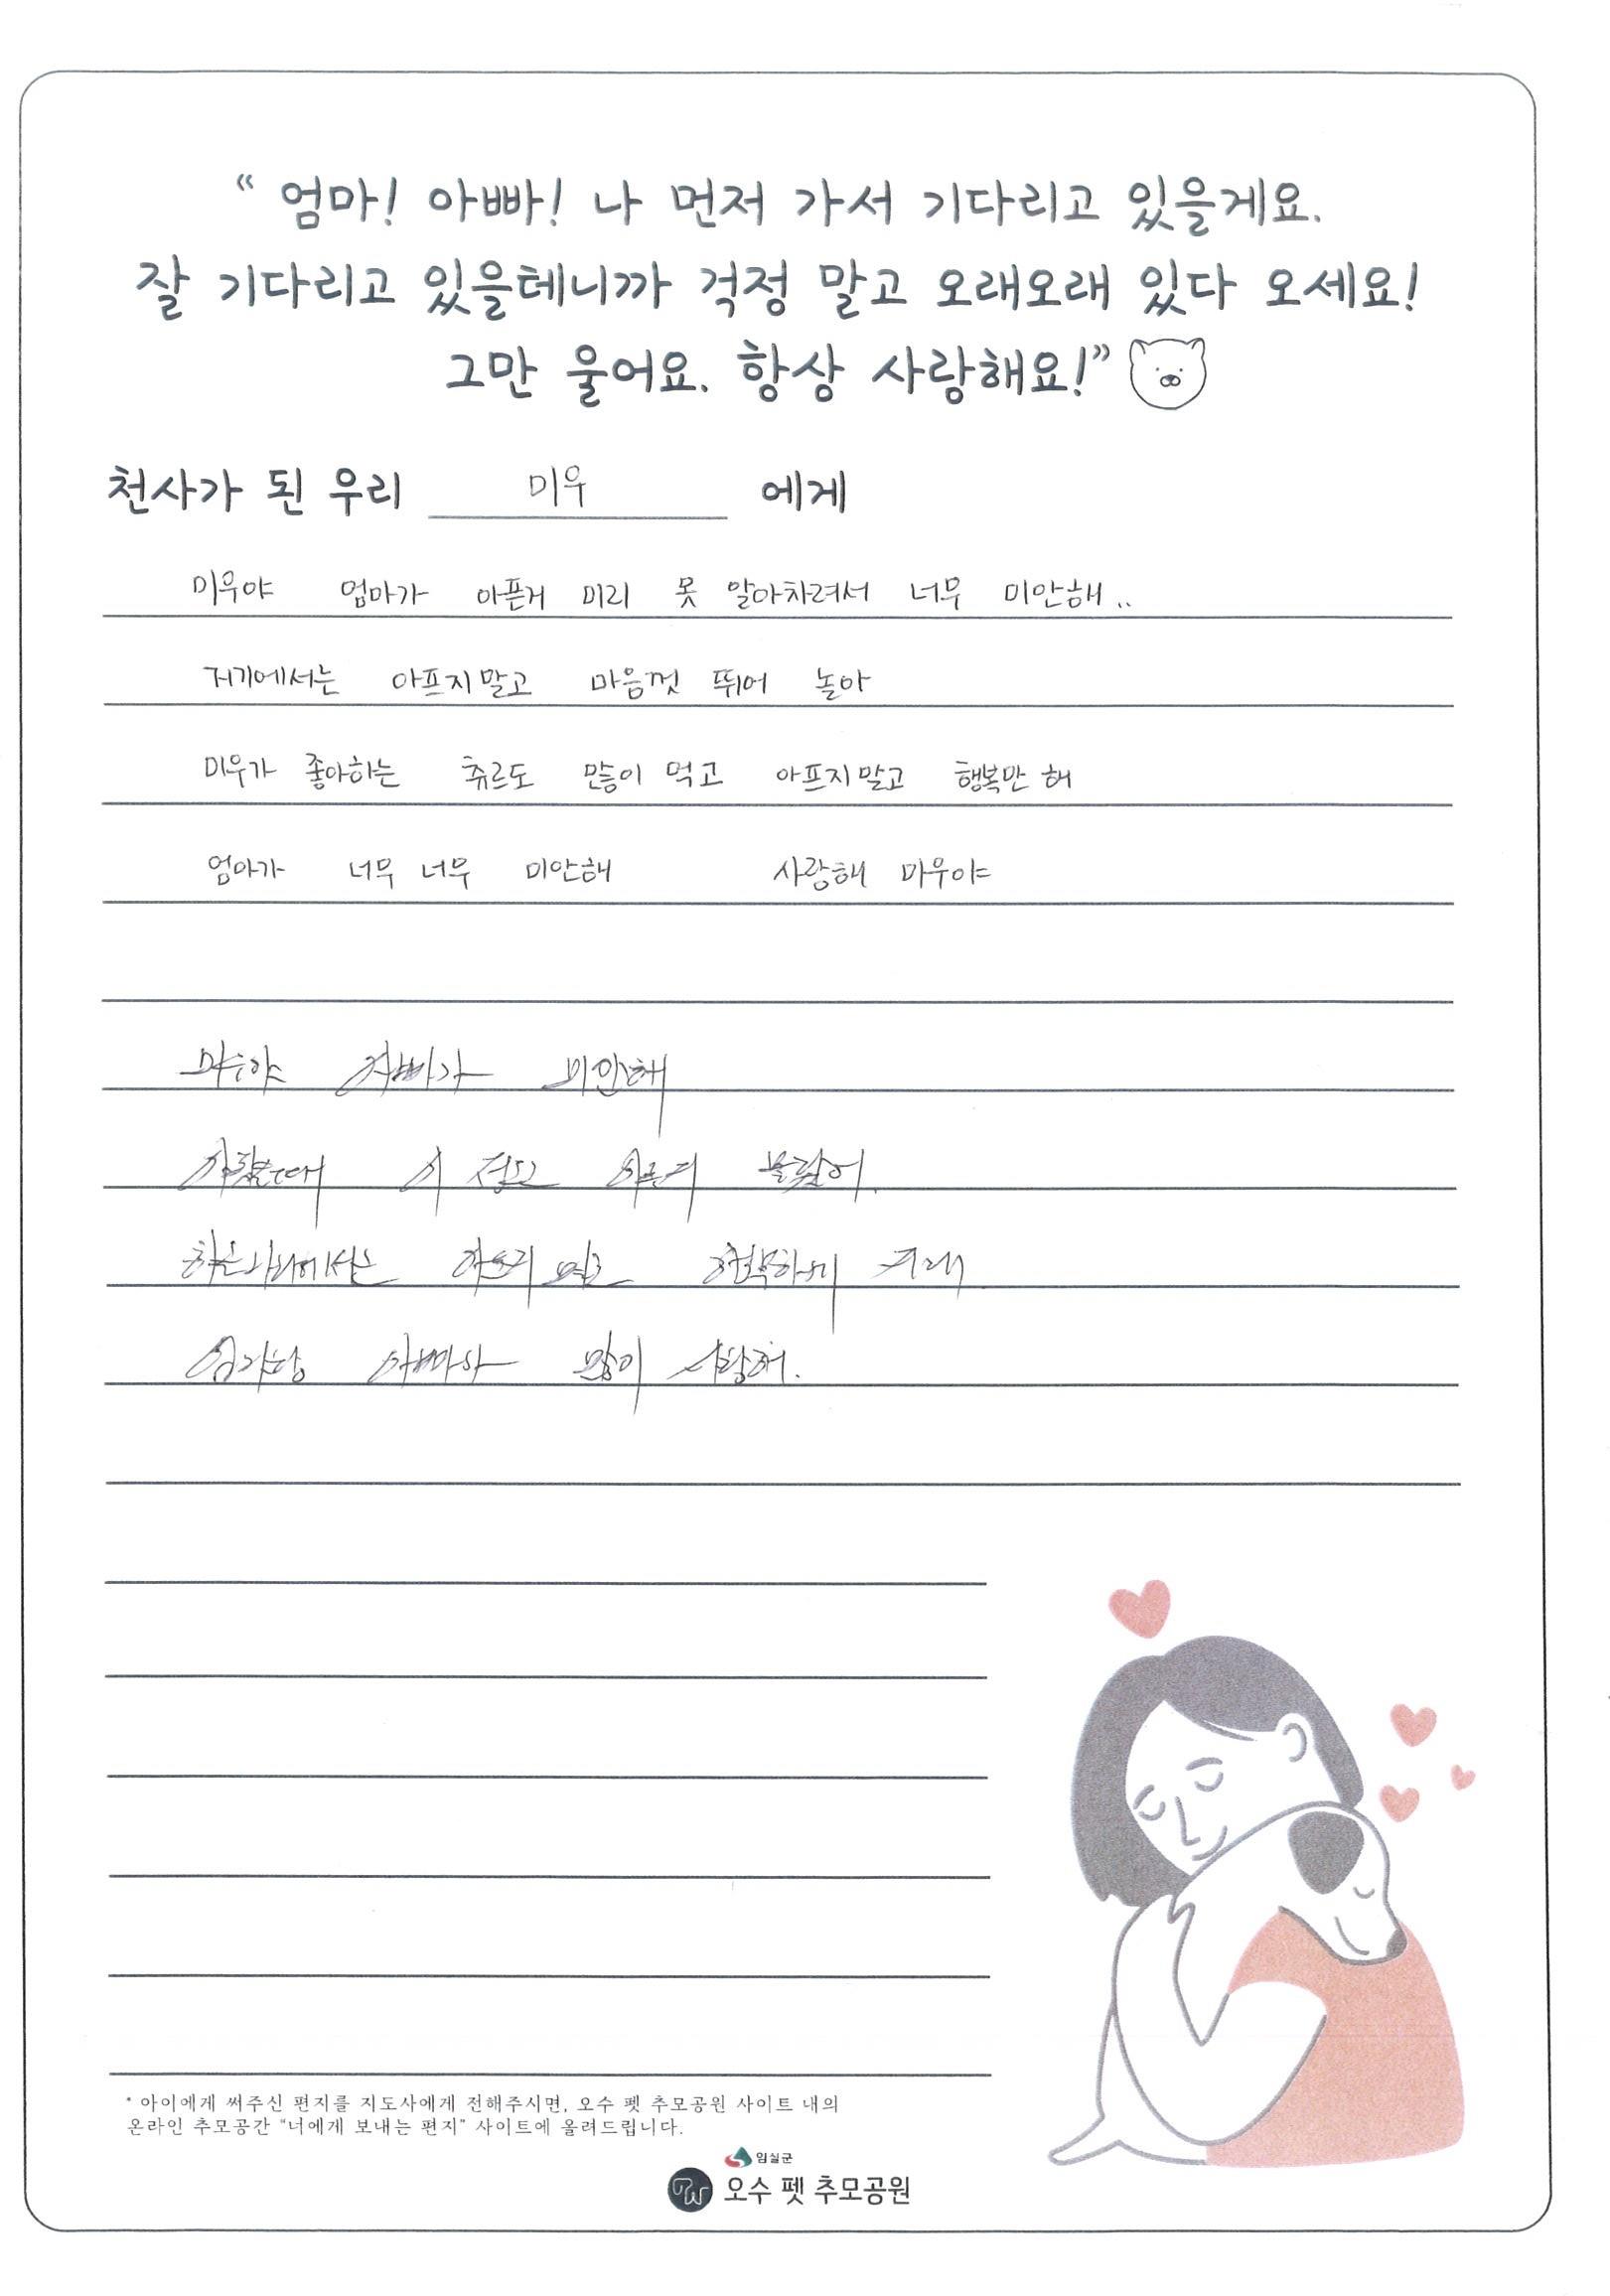 “ 엄마! 아빠! 나 먼저 가서 기다리고 있을게요.
잘 기다리고 있을테니까 걱정 말고 오래오래 있다 오세요!
그만 울어요. 항상 사랑해요!”
천사가 된 우리 미우 에게
미우야 엄마가 아픈거 미리 못 알아차려서 너무 미안해..
저기에서는 아프지말고 마음껏 뛰어 놀아
미우가 좋아하는 츄르도 많이 먹고 아프지말고 행복만 해
엄마가 너무 너무 미안해 사랑해 미우야
미우야 아빠가 미안해
이 정도 몰랐어.
하늘나라에서는 아프지 말고 행복하게
엄마랑 아빠가 많이 사랑해.
* 아이에게 써주신 편지를 지도사에게 전해주시면, 오수 펫 추모공원 사이트 내의
온라인 추모공간 “너에게 보내는 편지” 사이트에 올려드립니다.
임실군
오수 펫 추모공원